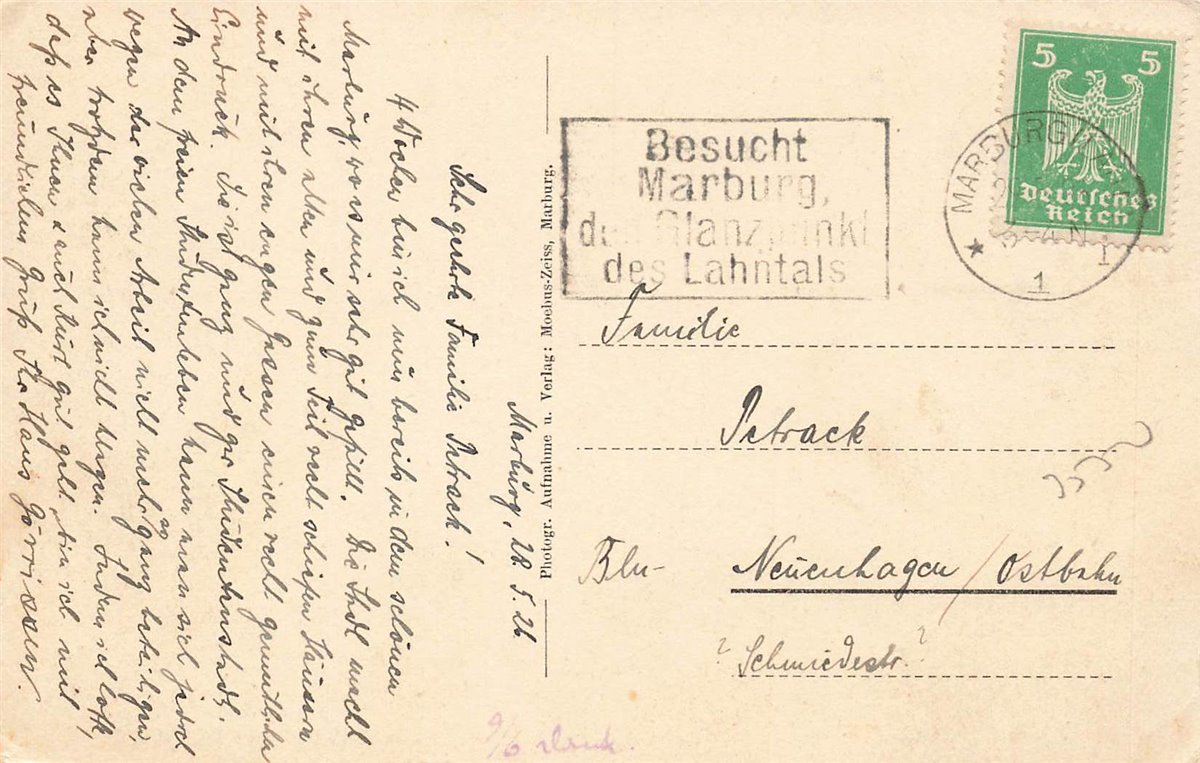 Marburg, 28.5.26
Sehr geehrte Familie Petrack!
4 Wochen bin ich nun bereits in dem schönen
Marburg, wo es mir sehr gut gefällt. Die Stadt macht
mit ihren alten und zum Teil recht schiefen Häusern
und mit ihren engen Gassen einen recht gemütlichen
Eindruck. Sie ist ganz und gar Studentenstadt.
An dem freien Studentenleben kann man sich jedoch
wegen der vielen Arbeit nicht mehr so ganz beteiligen,
aber trotzdem kann ich nicht klagen. Indem ich hoffe,
daß es Ihnen auch kurt gut geht, bin ich mit
freundlichem Gruß Ihr Hans Görrissen.
Photogr. Aufnahme u. Verlag: Moebus-Zeiss, Marburg.
Besucht
Marburg,
den Glanzpunkt
des Lahntals
5 5
Deutsches
Reich
MARBURG
3-4 N
1
Familie
Petrack
Bln- Neuenhagen / Ostbahn
? Schmiedestr. ?